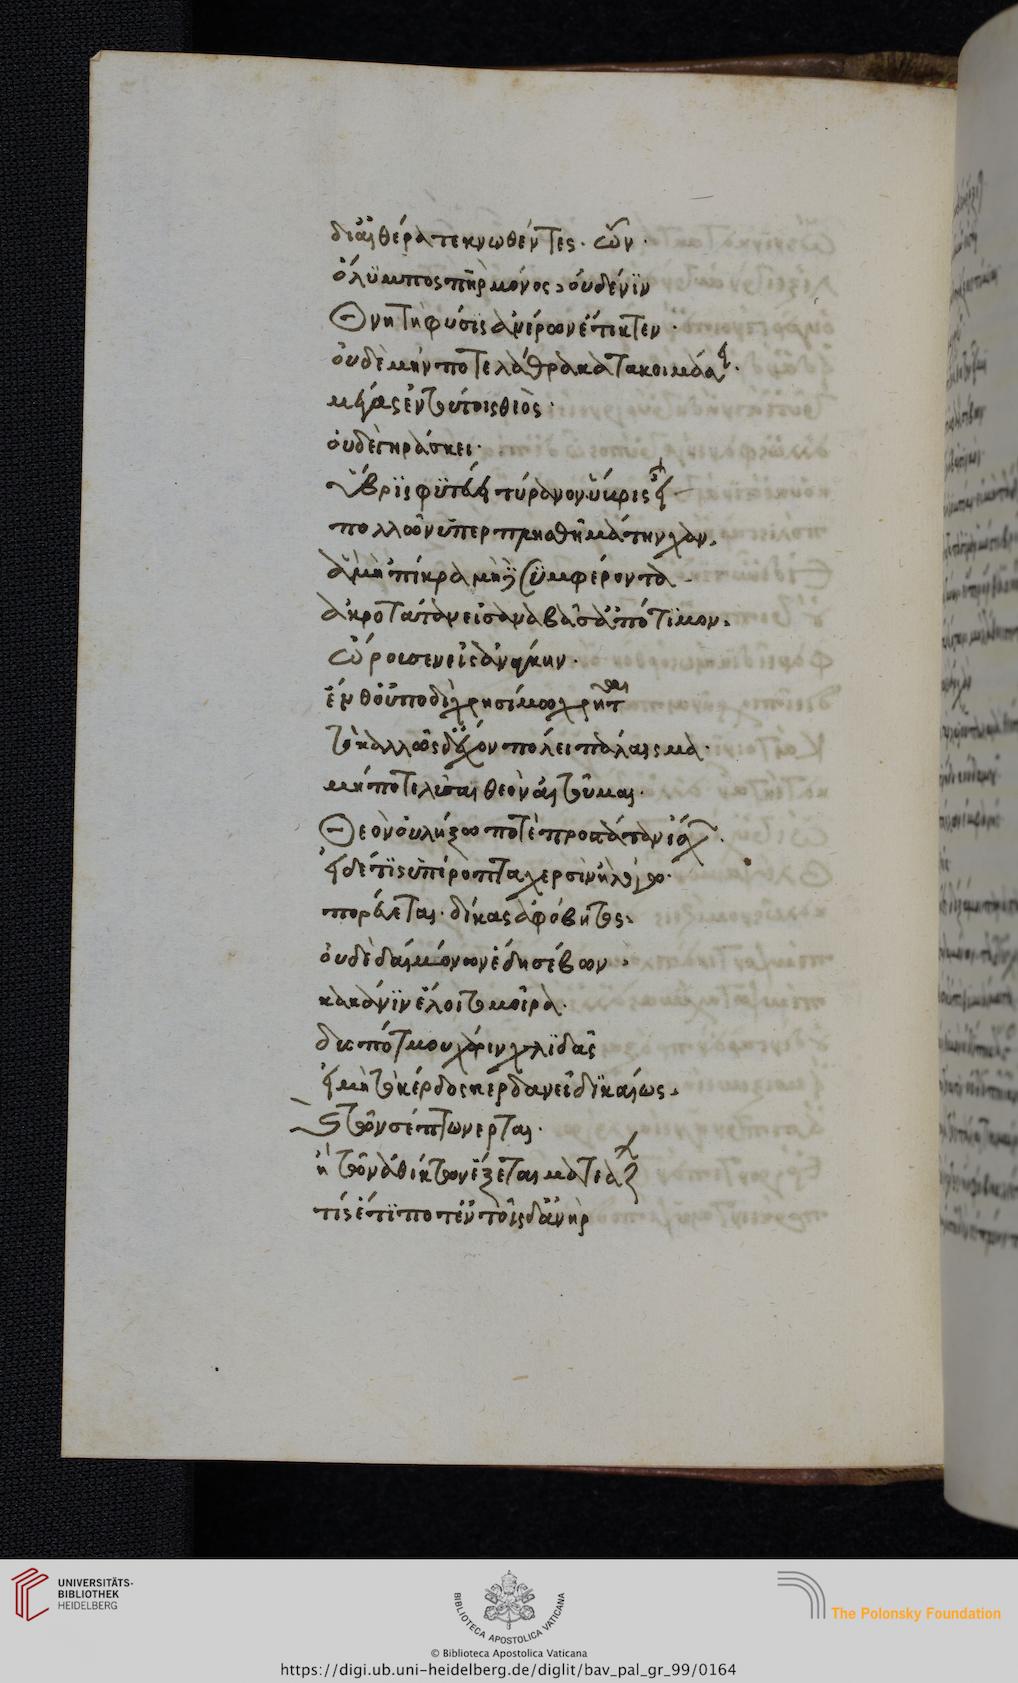 δι' αἰθέρα τεκνωθέντες. ὧν.
ὄλυμπος πὴρ μόνος, οὐδέ νιν
Θνητὴ φύσις ἀνέρων ἔτικτεν.
οὐδὲ μήν ποτε λάθρα κατακοιμάσῃ.
μέγας ἐν τούτοις θεὸς.
οὐδὲ γηράσκει.
Ὕβρις φυτεύει τύραννον ὕβρις εἰ
πολλῶν ὑπερπλησθῇ μάτην
ἃ μὴ 'πίκαιρα μὴ συμφέροντα
ἀκροτάταν εἰσαναβᾶσ' ἀπότιμον.
ὤρουσεν εἰς ἀνάγκην.
ἔνθ' οὐ ποδὶ χρησίμω χρῆται
τὸ καλλῶς δ' ἔχον πόλει πάλαισμα.
μήποτε λῦσαι θεὸν αἰτοῦμαι.
Θεὸν οὐ λήξω ποτὲ προστάταν ἴσχων.
εἰ δέ τις ὑπέροπτα χερσὶν ἢ λόγω.
πορεύεται. δίκας ἀφόβητος.
οὐδὲ δαιμόνων ἕδη σέβων.
κακά νιν ἕλοιτο μοῖρα.
δυσπότμου χάριν χλιδᾶς
εἰ μὴ τὸ κέρδος κερδανεῖ δικαίως.
καὶ τῶν ἀσέπτων ἔρξεται.
ἢ τῶν ἀθίκτων ἕξεται ματάζων
τίς ἔτι ποτ' ἐν τοῖσδ' ἀνὴρ
UNIVERSITÄTS-
BIBLIOTHEK
HEIDELBERG
BIBLIOTECA APOSTOLICA VATICANA
The Polonsky Foundation
© Biblioteca Apostolica Vaticana
https://digi.ub.uni-heidelberg.de/diglit/bav_pal_gr_99/0164